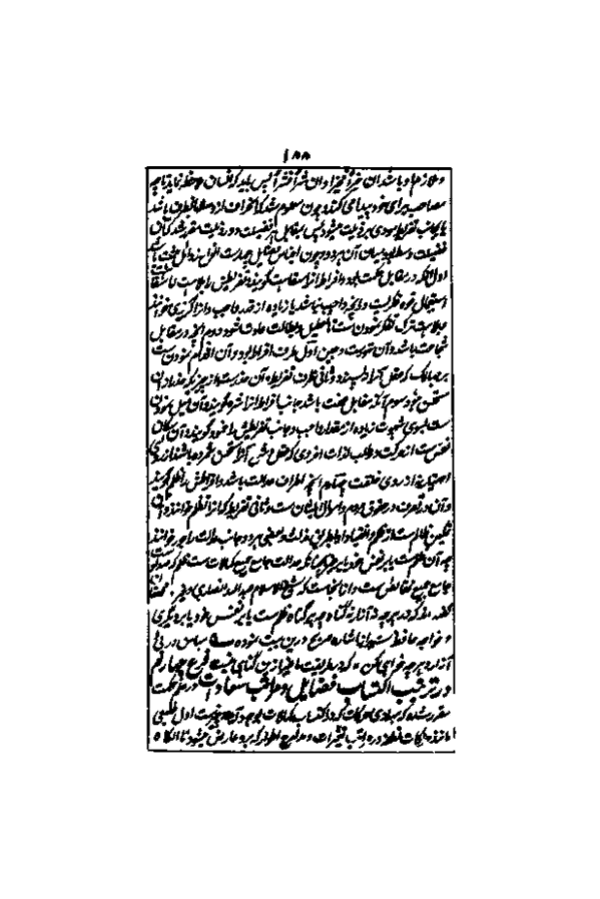 ۱۸۸
و ملازم او باشد ان خیرا فخیرا و ان شرا فشرا پس باید که انسان ملاحظه نماید تا چه
مصاحب برای خود پیدا می کند و چون معلوم شد که انحراف از وسط اما بطرف افراط باشد
یا بجانب تفریط پس بمقابل هر فضیلت دو رذیلت مقرر شد که آن
فضیلت وسط بود میان آن هر دو و چون اجناس فضایل چهارست اجناس رذائل هشت باشد
اول آنکه در مقابل حکمت بود و افراط آنرا سفاهت گویند و تفریطش را بلاهت
استعمال قوه فکریت در آنچه واجب نباشد یا زیاده از قدر واجب و آنرا گربزی خوانند
بلاهت ترک تفکر نمودن ست تا بتعطیل و بطالت عادت شود دوم آنچه در مقابل
شجاعت باشد و آن تهورست و جبن اول طرف افراط بود و آن اقدام نمودن ست
بر مهالک که عقل آنرا نپسندد و ثانی طرف تفریط و آن حذرست از چیزیکه حذر ازان
مستحسن نبود سوم آنکه مقابل عفت باشد جانب افراط آنرا شره گویند و آن میل نمودن
ست بسوی شهوت زیاده از مقدار واجب و جانب تفریطش را خمود گویند و آن سکون
نفس ست از حرکت در طلب لذات ضروری که عقل و شرع آنرا مستحسن شمرده باشند از روی
اختیار نه از روی خلقت چهارم آنچه اطراف عدالت باشد و افراطش را ظلم گویند
و آن تصرف در حقوق مردم و اموال ایشان ست و ثانی تفریط که آنرا انظلام خوانند و آن
تمکین ظالم ست از ظلم و انقیاد او بطریق مذلت و بعضی هر دو جانب عدالت را جور خوانند
چه آن ظلم ست یا بر نفس خود یا بر غیر چنانکه عدالت جامع جمیع کمالات ست ظلم که ضد اوست
جامع جمیع نقائص ست و ازینجاست که شیخ الاسلام عبدالله انصاری و غیره
گفته اند که هر چه نه آزار نه گناه چه هر گناه ظلم ست یا بر نفس خود یا بر دیگری
و خواجه حافظ شیراز اشاره صریح درین بیت نموده ست مباش در پی
آزار و هر چه خواهی کن * که در طریقت ما غیر ازین گناهی نیست فرع چهارم
در ترتیب اکتساب فضایل و مراتب سعادات در علم حکمت
مقرر شده که مبادی حرکات که در اکتساب کمالات بوجود آید دو چیزست اول طبیعی
مانند حرکات نطفه در مراتب تغیرات و مدارج اطوار که برو عارض میشود تا آنگاه